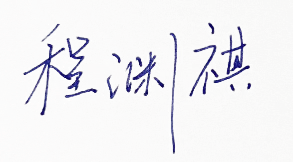 程渊祺